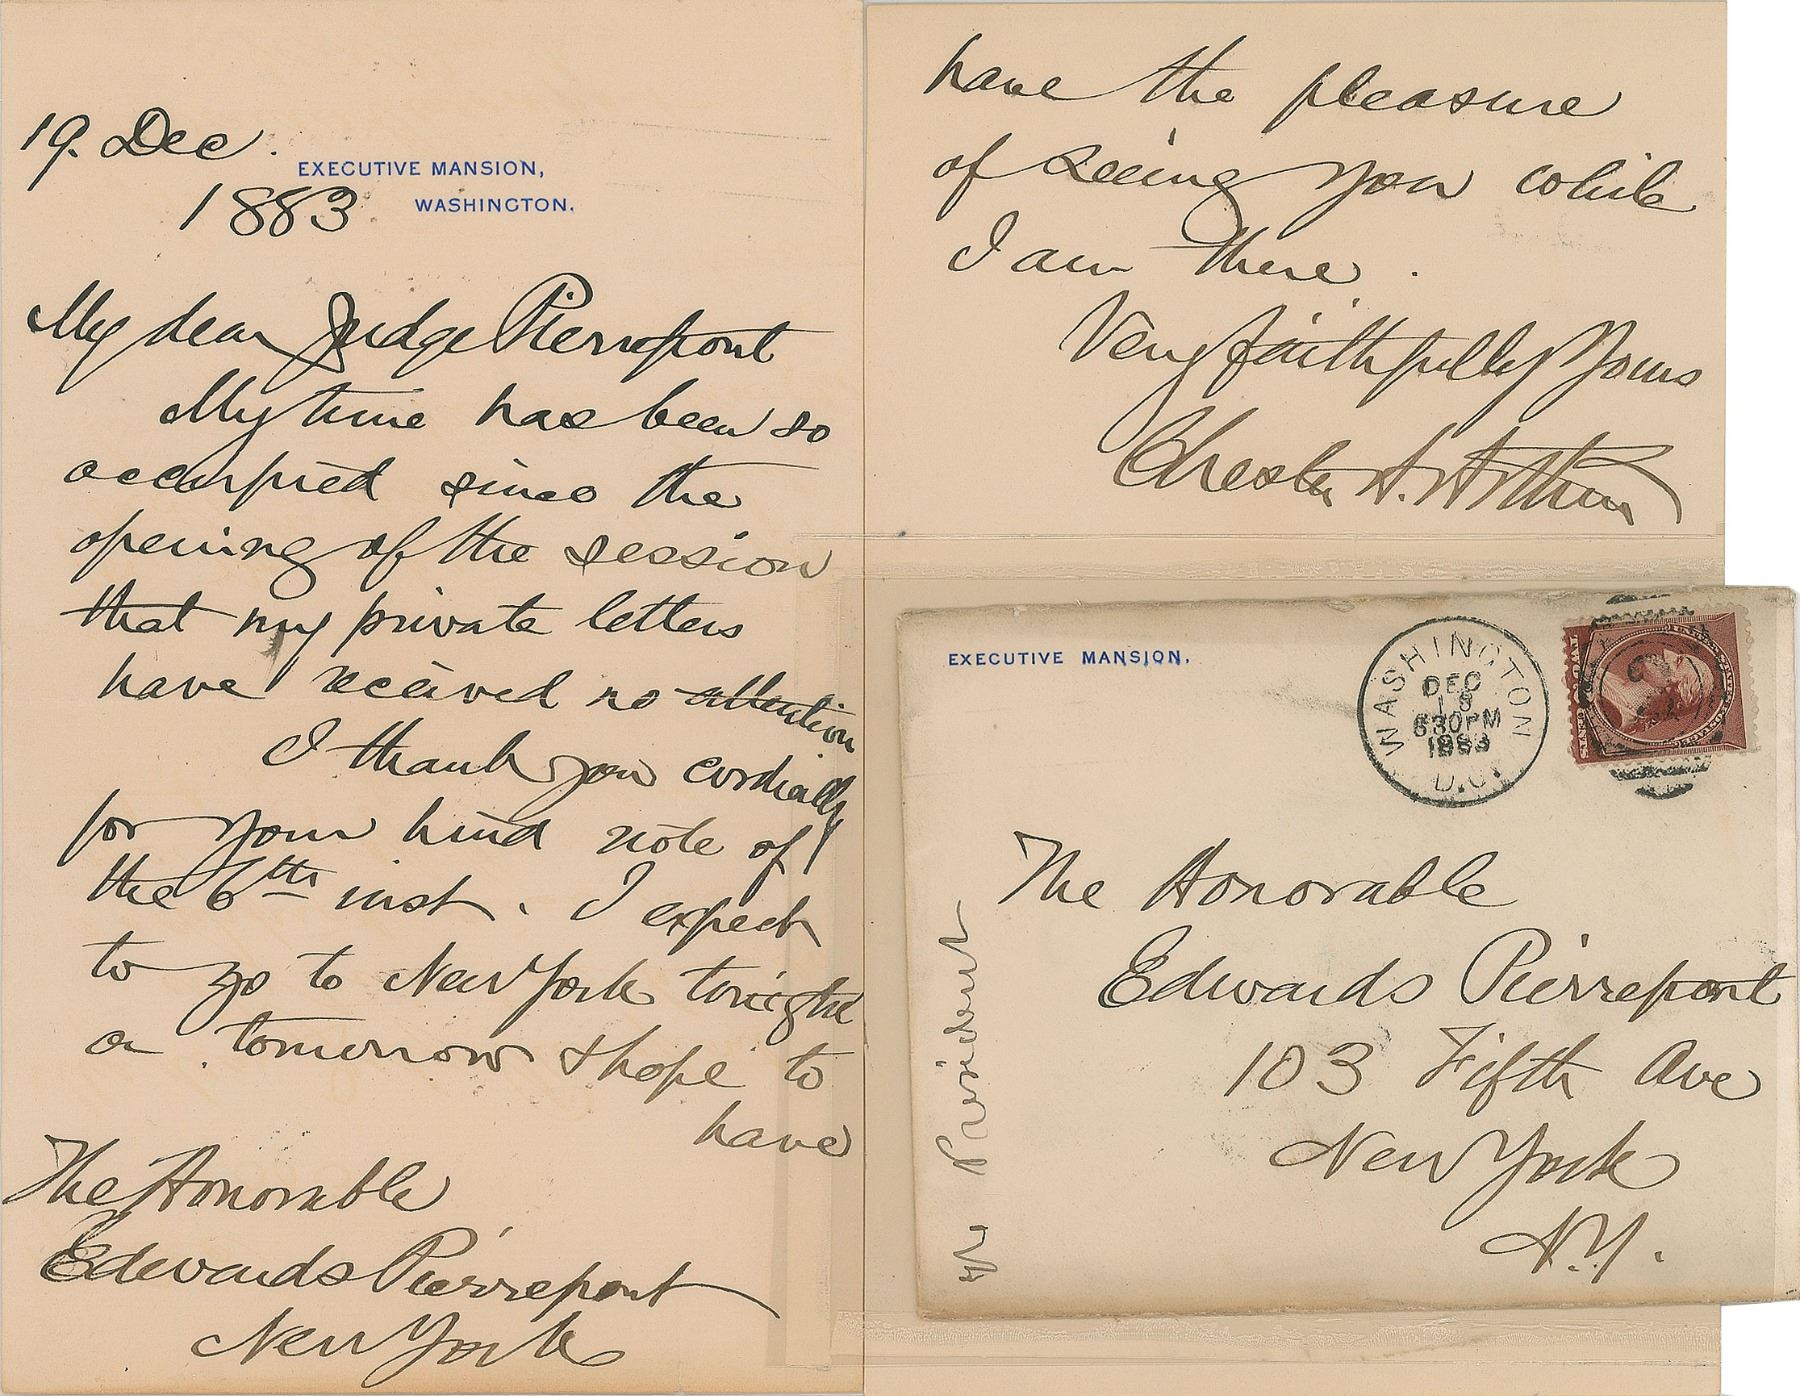 19. Dec.
EXECUTIVE MANSION,
1883
WASHINGTON.
My dear Judge Pierrepont
My time has been so
occupied since the
opening of the session
that my private letters
have received no attention
I thank you cordially
for your kind note of
the 6th inst. I expect
to go to New York tonight
or tomorrow & hope to
have
The Honorable
Edwards Pierrepont
New York
have the pleasure
of seeing you while
I am there.
Very faithfully Yours
Chester A. Arthur
EXECUTIVE MANSION.
WASHINGTON
DEC
630PM
1883
D.C.
The Honorable
Edwards Pierrepont
103 Fifth Ave
New York
N.Y.
President